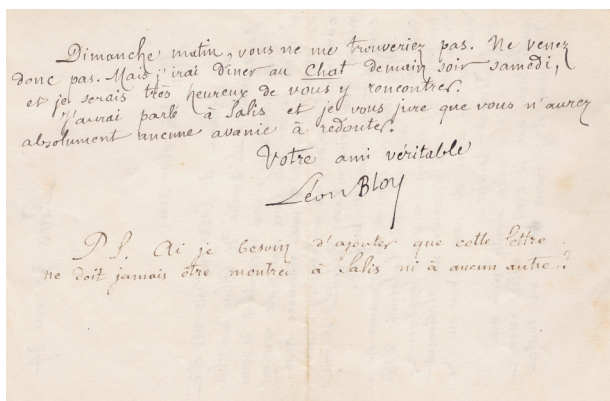 Dimanche matin, vous ne me trouveriez pas. Ne venez
donc pas. Mais j'irai dîner au Chat demain soir samedi,
et je serais très heureux de vous y rencontrer.
J'aurai parlé à Salis et je vous jure que vous n'aurez
absolument aucune avanie à redouter.
Votre ami véritable
Léon Bloy
P.S. Ai je besoin d'ajouter que cette lettre
ne doit jamais être montrée à Salis ni à aucun autre ?